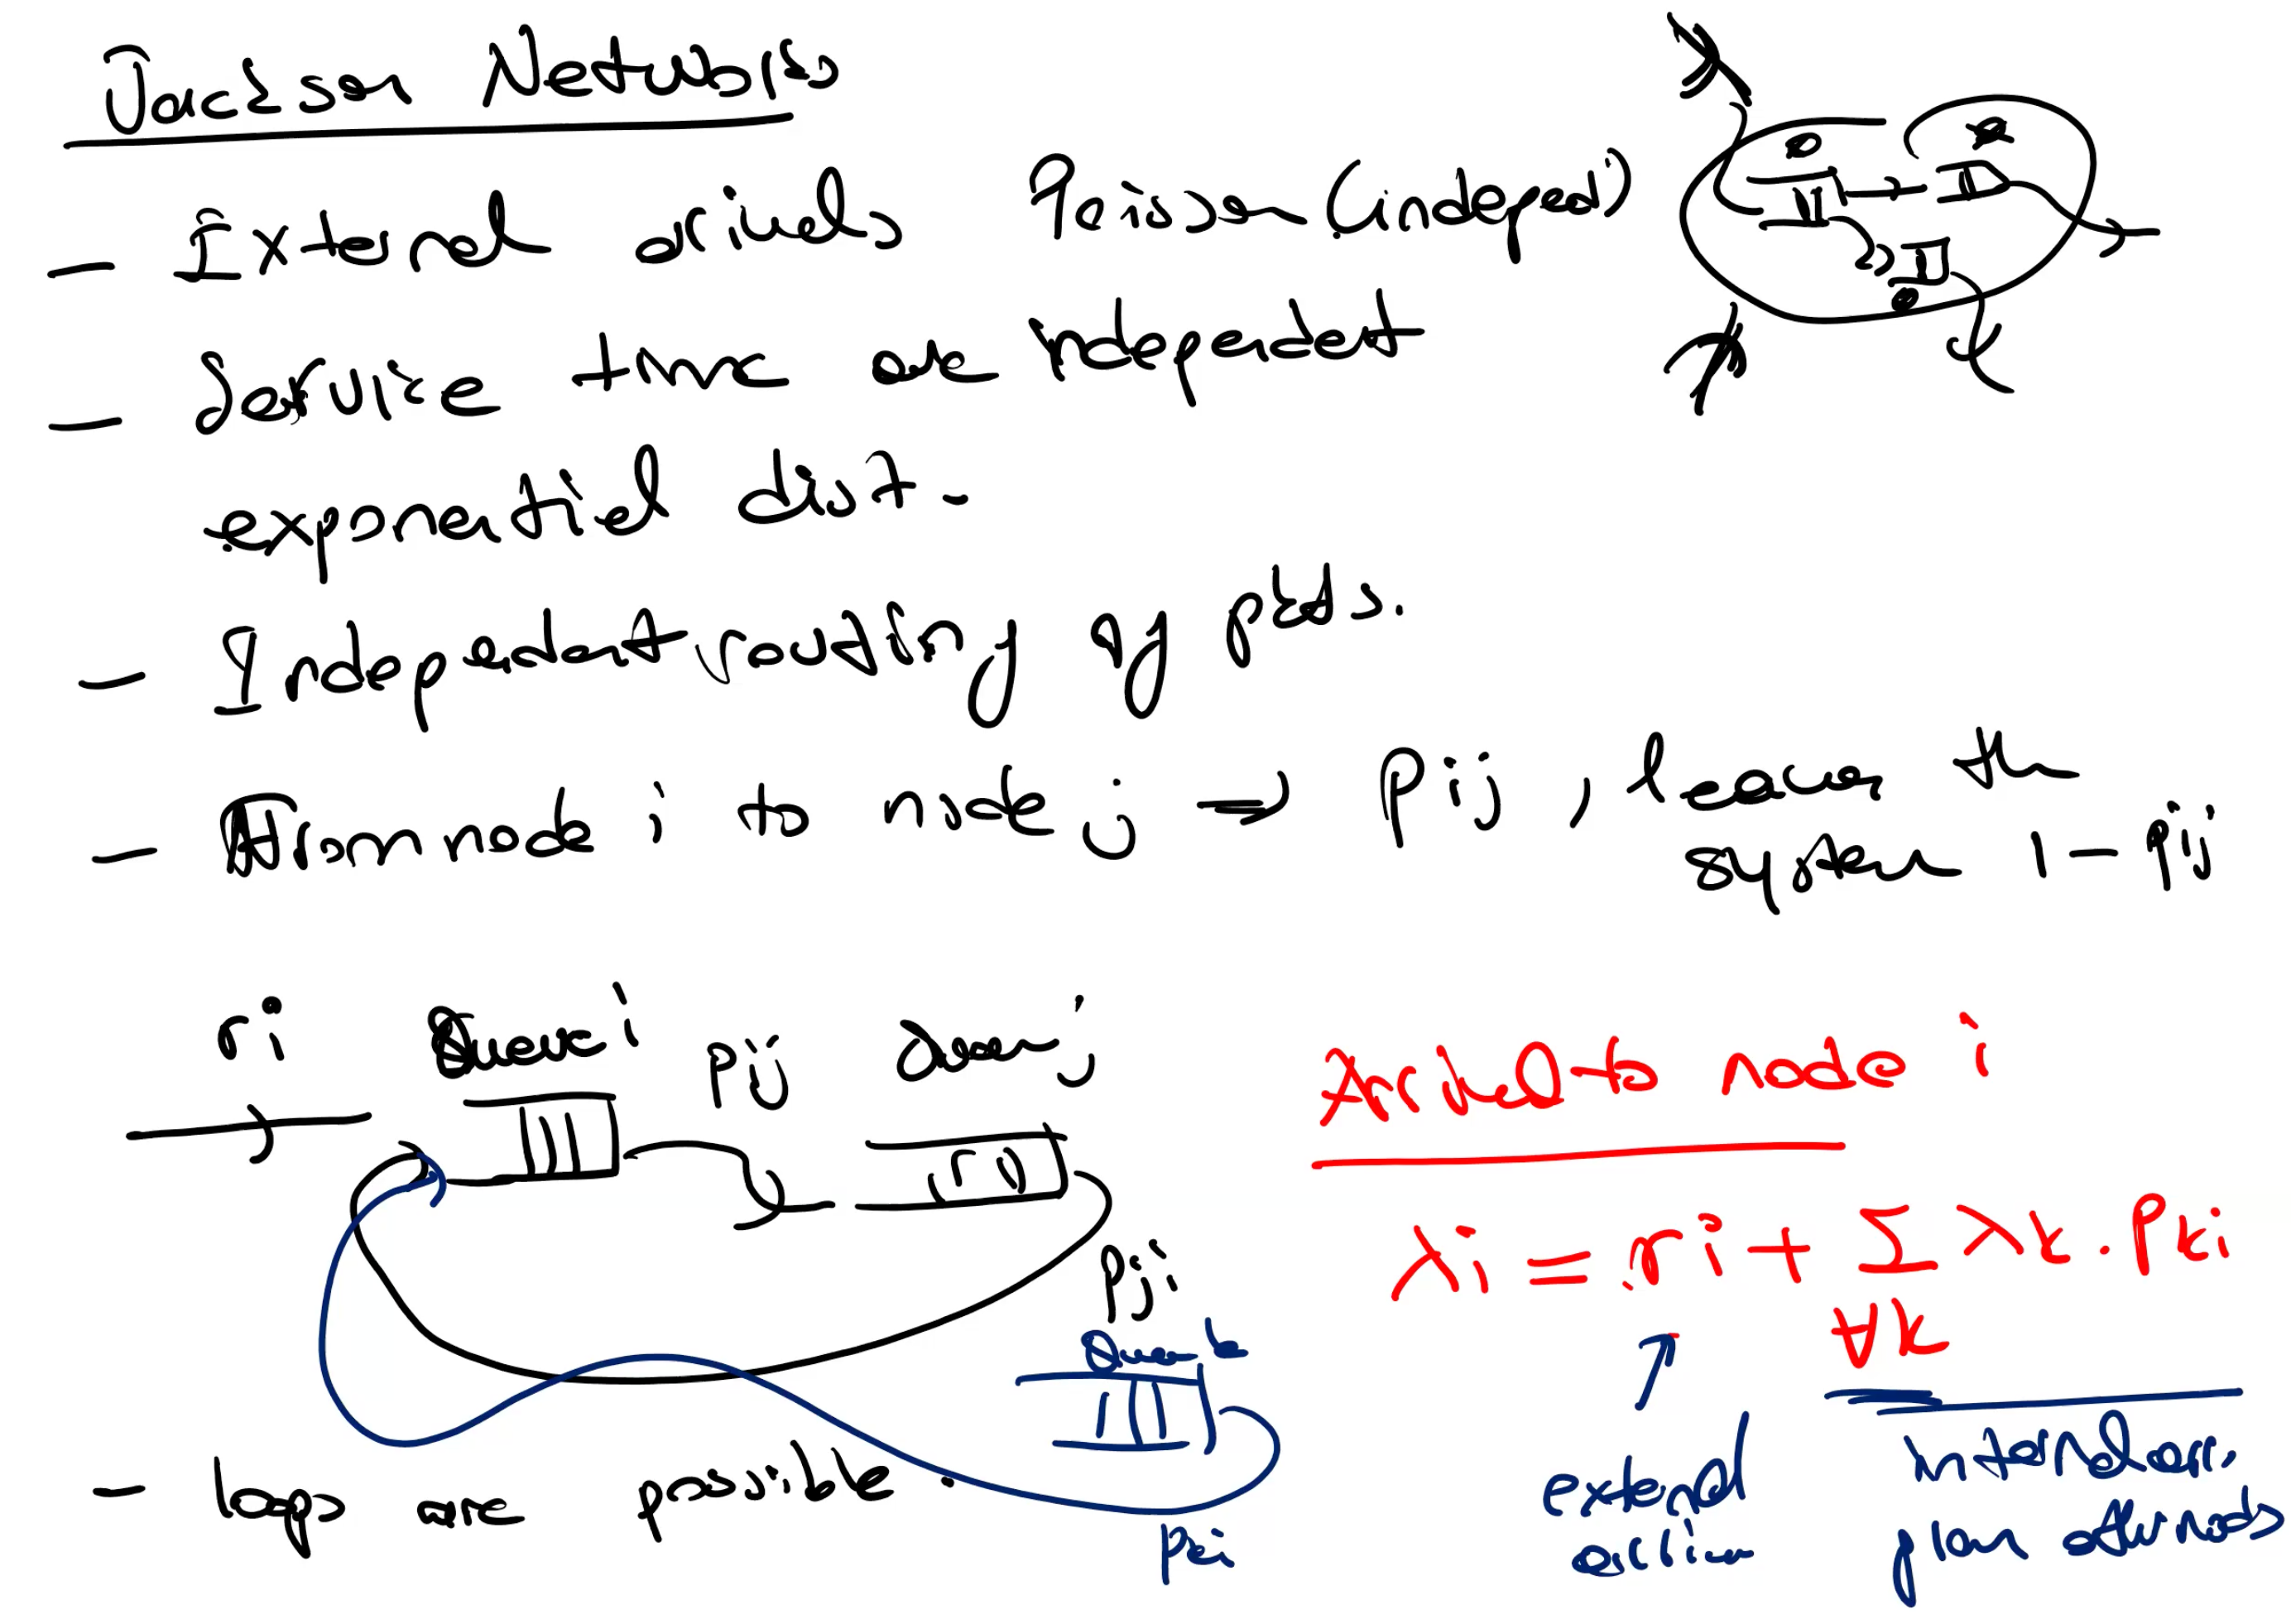 Jackson Networks
- External arrivals Poisson (indepen.)
- Service time are independent
exponential dist.
- Independent routing of pkts.
- From node i to node j → Pij , leaves the
system 1 - Pij
ri Queue i Pij Queue j
Pji
Queue k
Pki
- loops are possible.
Arrival to node i
λi = ri + Σ λk . Pki
∀k
external
arrival
internal arr.
from other nodes